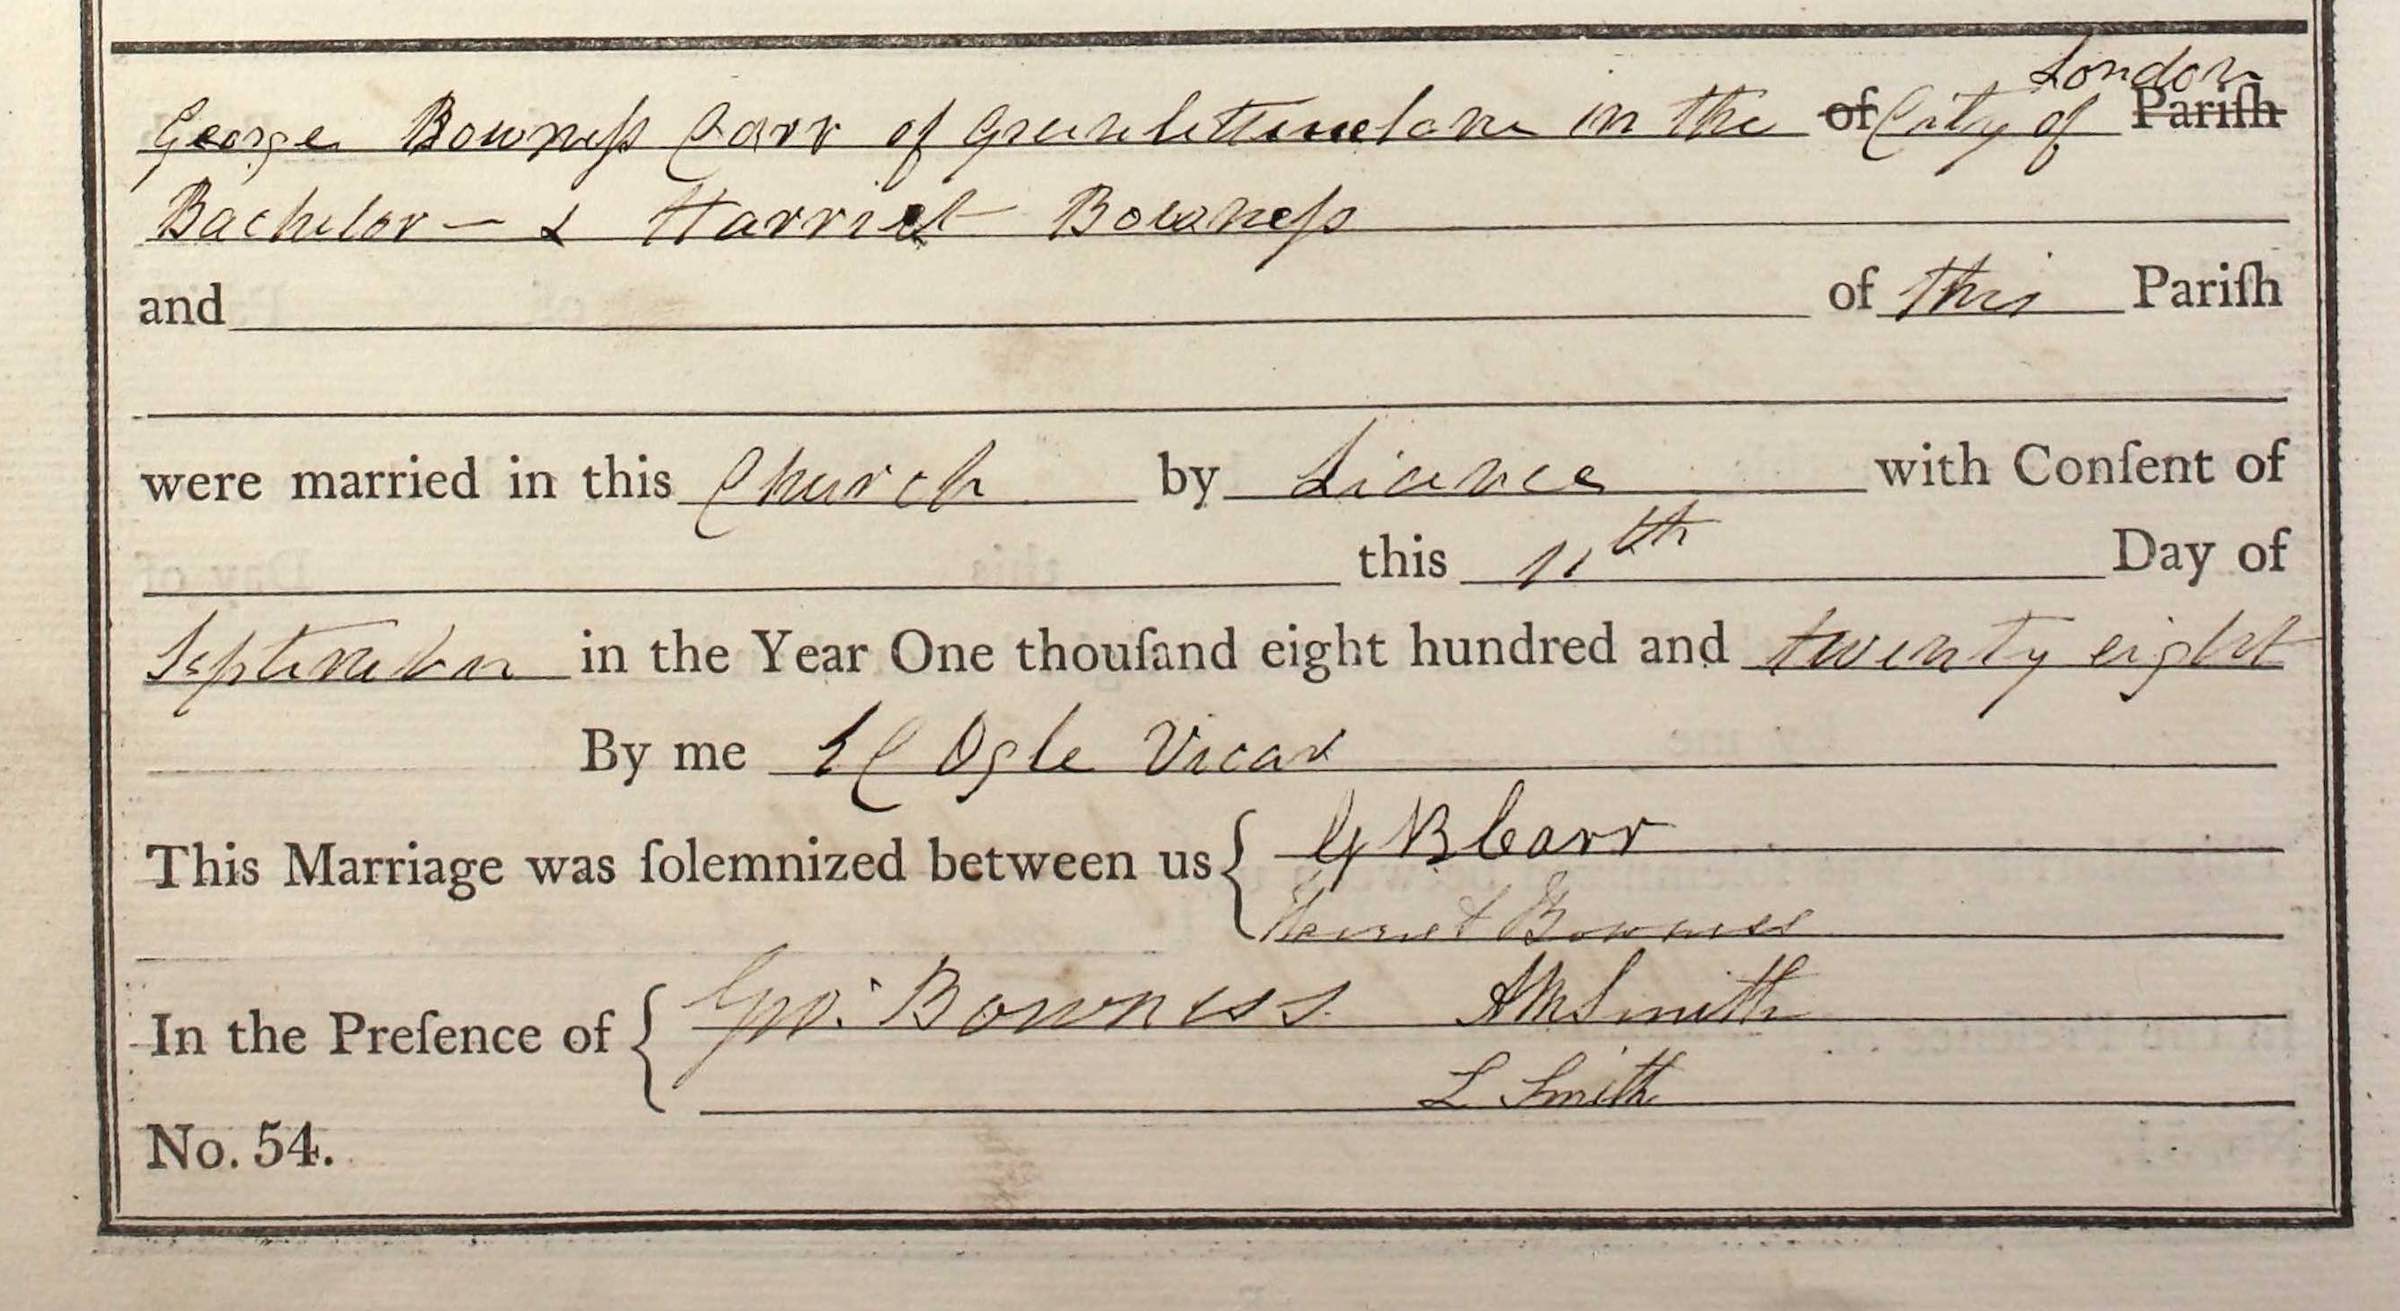 London
George Bowneſs Carr of Greenlettucelane in the of City of Pariſh
Bachelor — & Harriet Bowneſs
and of this Pariſh
were married in this Church by Licence with Conſent of
this 11th Day of
September in the Year One thouſand eight hundred and twenty eight
By me E C Ogle Vicar
This Marriage was ſolemnized between us { G B Carr
Harriet Bowness
In the Preſence of { Geo: Bowness A M Smith
L Smith
No. 54.